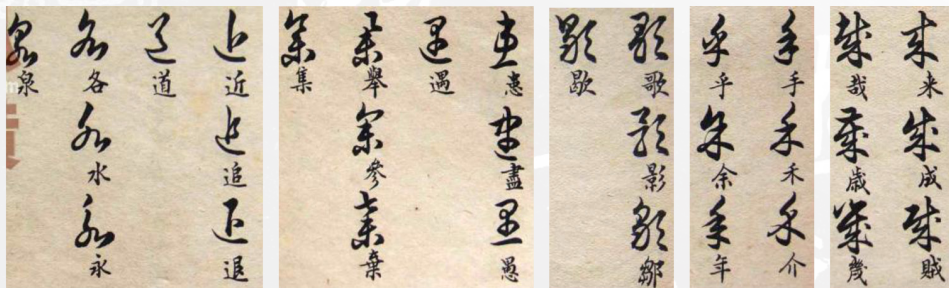 近追退
道
各水永
泉
患盡愚
遇
舉參棄
集
歌影鄒
歇
手禾介
乎余年
来成賊
哉歳幾